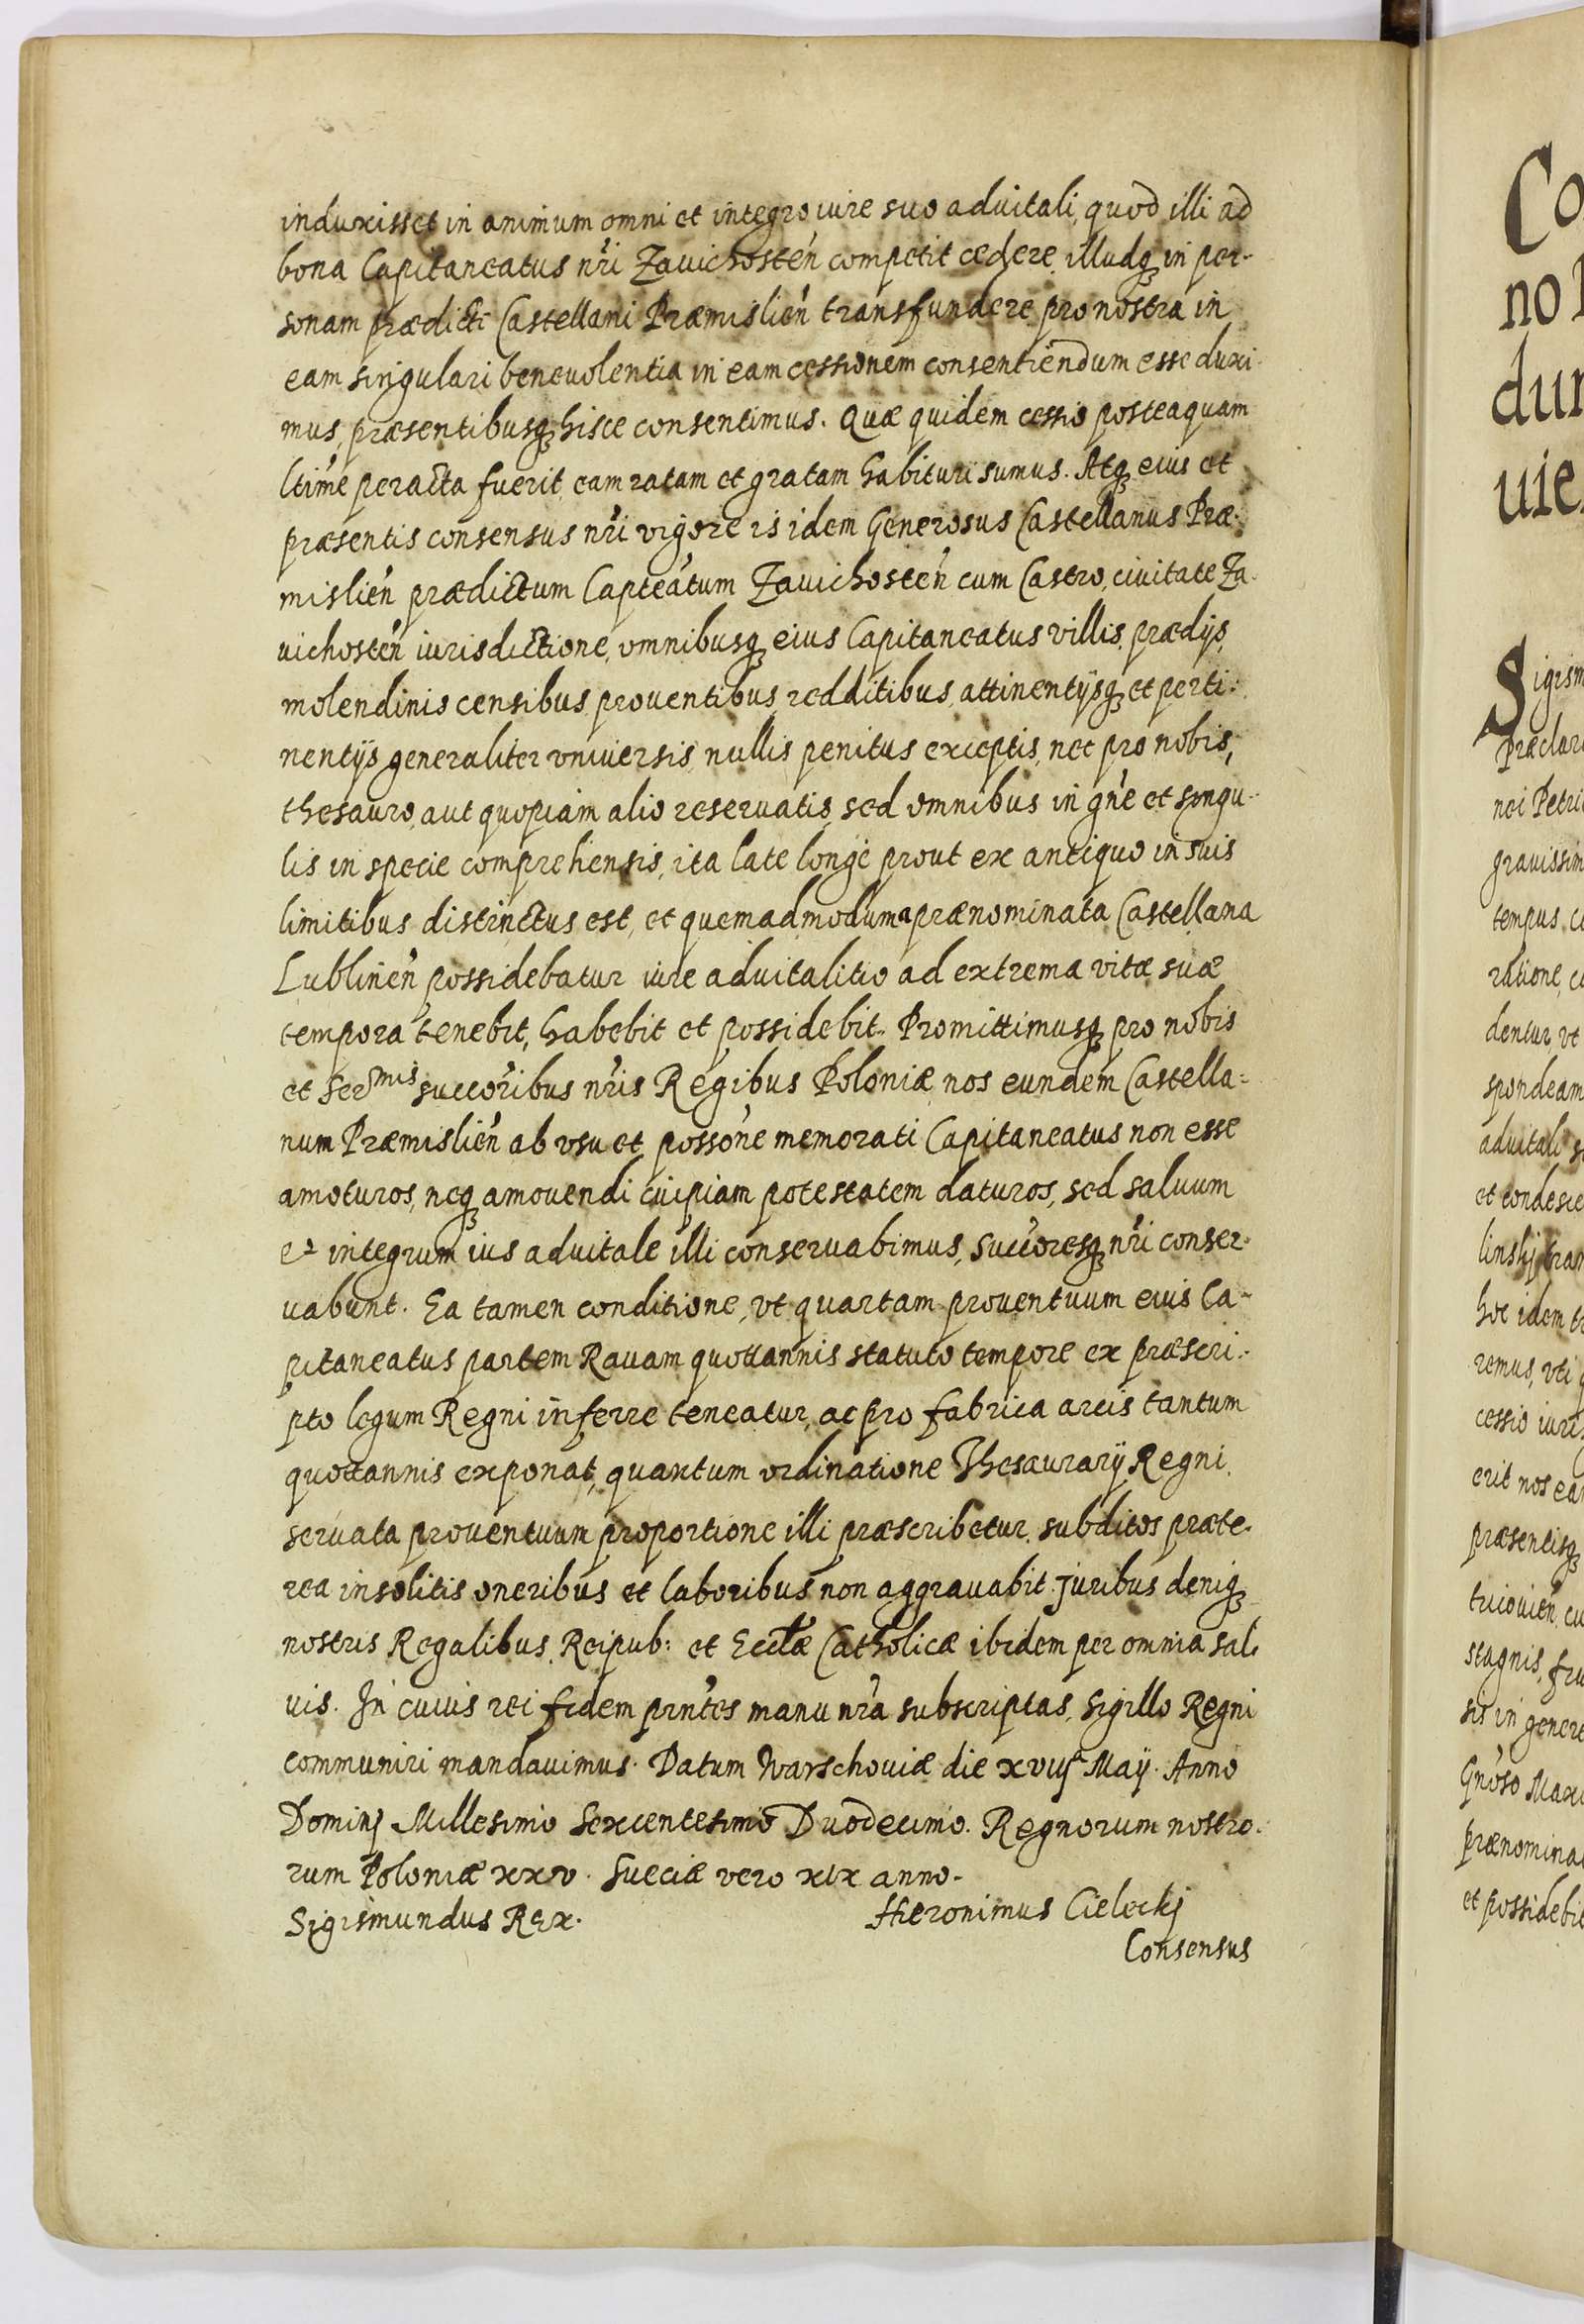 induxisset in animum omni et integro iure suo aduitali, quod illi ad
bona Capitaneatus nr̃i Zauichosteń competit cedere, illudq́ʒ in per-
sonam prædicti Castellani Præmislień transfundere, pro nostra in
eam singulari beneuolentia in eam cessionem consentiendum esse duxi-
mus, præsentibusqʒ hisce consentimus. Quæ quidem cessio posteaquam
ltime peracta fuerit, eam ratam et gratam habituri sumus. Atqʒ eius et
præsentis consensus nr̃i vigore is idem Generosus Castellanus Præ-
mislień prædictum Capteatum Zauichosteń cum Castro, ciuitate Za-
uichosteń iurisdictione, omnibusqʒ eius Capitaneatus villis, prædijs,
molendinis censibus prouentibus, redditibus, attinentijsqʒ et perti-
nentijs generaliter vniuersis, nullis penitus exceptis, nec pro nobis,
thesauro, aut quopiam alio reseruatis, sed omnibus in gńe et singu-
lis in specie comprehensis, ita late longè prout ex antiquo in suis
limitibus distinctus est, et quemadmodum a prænominata Castellana
Lublineń possidebatur iure aduitalitio ad extrema vitæ suæ
tempora tenebit, habebit et possidebit. Promittimusqʒ pro nobis
et Serᵐⁱˢ succoribus nr̃is Regibus Poloniæ nos eundem Castella=
num Præmislień ab vsu et possońe memorati Capitaneatus non esse
amoturos, neqʒ amouendi cuipiam potestatem daturos, sed saluum
et integrum ius aduitale illi conseruabimus, succoresqʒ nr̃i conser-
uabunt. Ea tamen conditione, vt quartam prouentuum eius Ca-
pitaneatus partem Rauam quottannis statuto tempore ex præscri-
pto legum Regni inferre teneatur, ac pro fabrica arcis tantum
quottannis exponat, quantum ordinatione Thesaurarij Regni,
seruata prouentuum proportione illi præscribetur, subditos præte-
rea insolitis oneribus et laboribus non aggrauabit. Juribus deniqʒ
nostris Regalibus, Reipub: et Ecclæ Catholicæ ibidem per omnia sal-
uis. In cuius rei fidem prńtes manu nr̃a subscriptas, Sigillo Regni
communiri mandauimus. Datum Warschouiæ die xvııȷ Maij. Anno
Dominj Millesimo Sexcentesimo Duodecimo. Regnorum nostro-
rum Poloniæ xxv. Sueciæ vero xıx anno.
Sigismundus Rex. Hieronimus Cieleckj
Consensus
Co
no
dun
uie
Sigism
Præclar
nei Petri
grauissim
tempus, c
ratione, c
dentur, vt
spondeam
aduitali s
et condesce
linskj tran
hoc idem t
remus, vti
cessio iuri
erit nos ea
præsentisqʒ
tricouień cu
stagnis, fru
sis in genere
Gńoso Max
prænomina
et possidebit